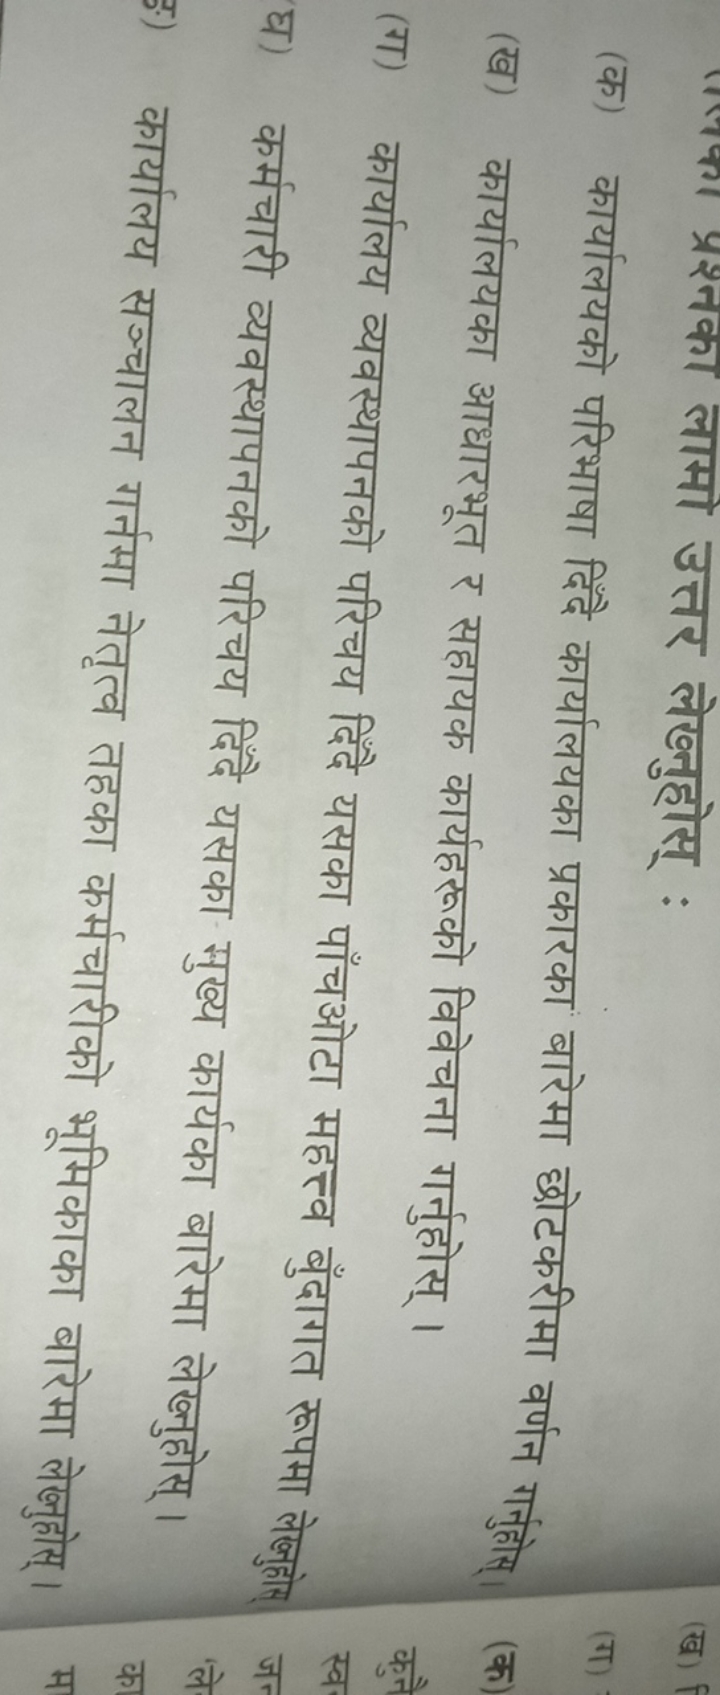 प्रश्नको लामो उत्तर लेख्नुहोस् :
(क) कार्यालयको परिभाषा दिँदै कार्यालयका प्रकारका बारेमा छोटकरीमा वर्णन गर्नुहोस् ।
(ख) कार्यालयका आधारभूत र सहायक कार्यहरूको विवेचना गर्नुहोस् ।
(ग) कार्यालय व्यवस्थापनको परिचय दिँदै यसका पाँचओटा महत्त्व बुँदागत रूपमा लेख्नुहोस्
(घ) कर्मचारी व्यवस्थापनको परिचय दिँदै यसका मुख्य कार्यका बारेमा लेख्नुहोस् ।
कार्यालय सञ्चालन गर्नमा नेतृत्व तहका कर्मचारीको भूमिकाका बारेमा लेख्नुहोस् ।
(ख)
(ग)
(क)